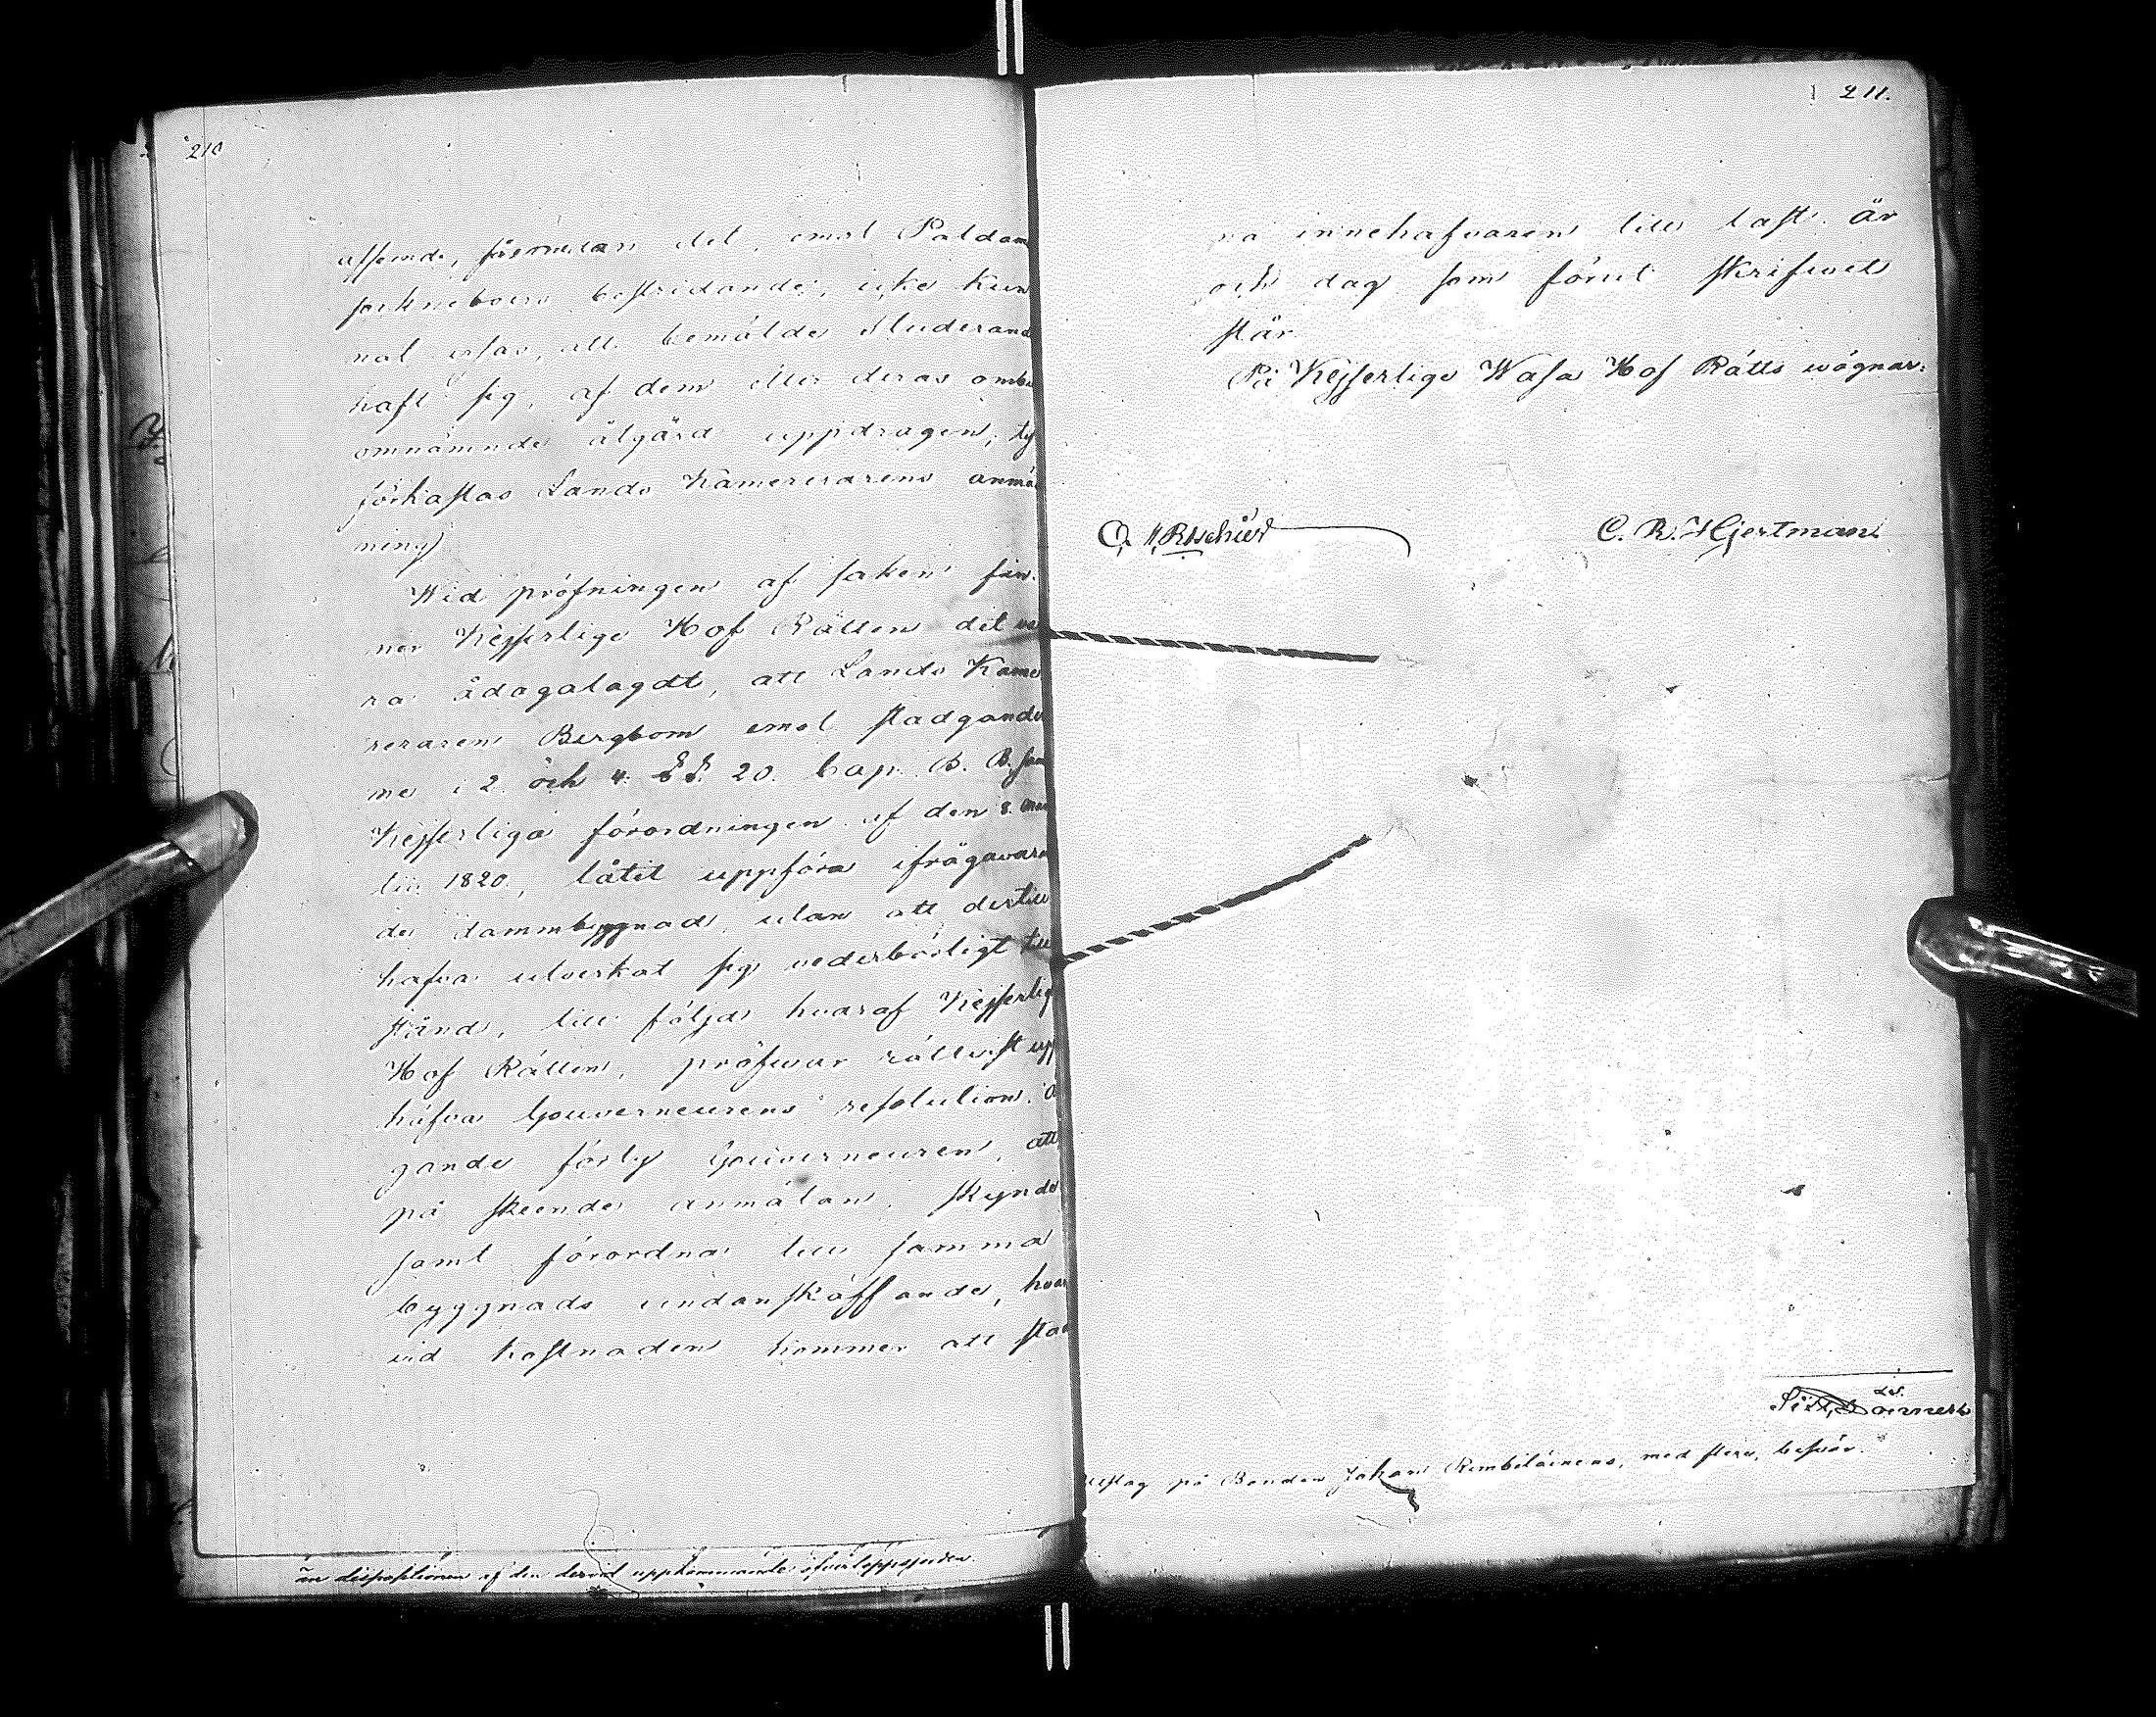 210
afsemde, förmedan det, emot Paldam
sockneboers bestridande, icke kun
nat visas, att bemälde Studerand
haft sig, af dem eller deras ombu
omnämnde åtgärd uppdragen; ty
förkastas Lands Kamererarens anmä
ning)
Wid pröfningen af saken fin-
ner Kejserlige Hof Rätten det va
ra ådagalagdt, att Lands Kame
reraren Bergbom emot stadgande
ne i 2. och 4. §§. 20. Cap. B. B. sam
Kejserliga förordningen af den 8. Mar
tii 1820, låtit uppföra ifrågavaran
de dammbyggnad, utan att dertill
hafva utverkat sig vederbörligt till
stånd, till följd hvaraf Kejserlig
Hof Rätten, pröfvar rättvist upp
häfva Gouverneurens resolution. Å
gande förty Gouverneuren, att
på skeende anmälan, skynd
samt förordna till samma
byggnads undanskaffande, hvar
vid kostnaden kommer att stad
än dispositionen af den dervid uppkommande
211.
na innehafvaren till last. År
och dag som förut skrifvet
står.
På Kejserlige Wasa Hof Rätts wägnar:
C. R. Hjertman
utslag på Bonden Johan Rimbiläinens, med flera, besvär.